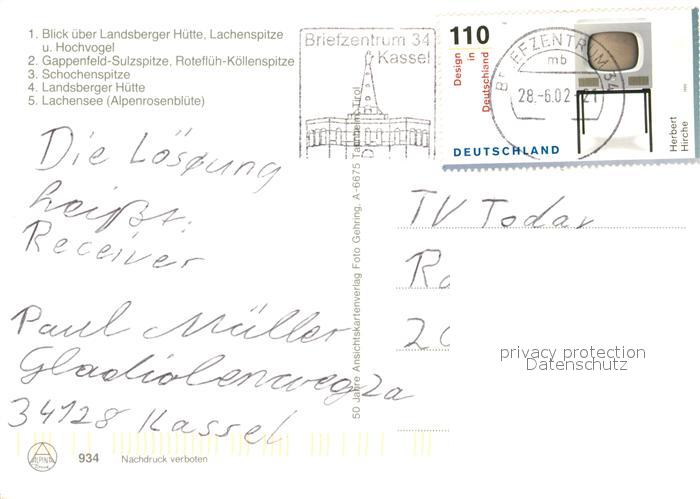 1. Blick über Landsberger Hütte, Lachenspitze
u. Hochvogel
2. Gappenfeld-Sulzspitze, Roteflüh-Köllenspitze
3. Schochenspitze
4. Landsberger Hütte
5. Lachensee (Alpenrosenblüte)
Briefzentrum 34
Kassel
110
Design in Deutschland
DEUTSCHLAND
Herbert Hirche
BRIEFZENTRUM 34
mb
28.-6.02-21
Die Lösung
heißt:
Receiver
Paul Müller
Gladiolenweg 2a
34128 Kassel
50 Jahre Ansichtskartenverlag Foto Gehring, A-6675 Tannheim-Tirol
TV Today
2
privacy protection
Datenschutz
ALPINA
934 Nachdruck verboten